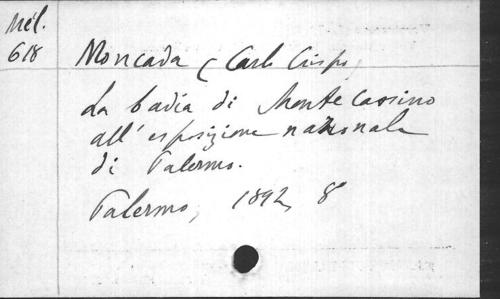 Mél.
618
Moncada (Carlo Crispo)
La badia di Monte Cassino
all'esposizione nazionale
di Palermo.
Palermo, 1892, 8°